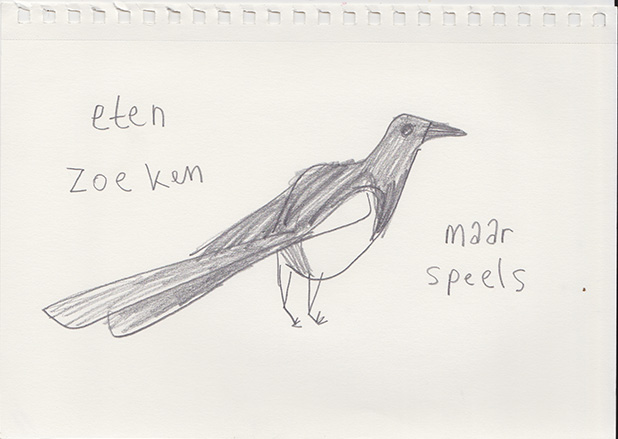 eten
zoeken
maar
speels